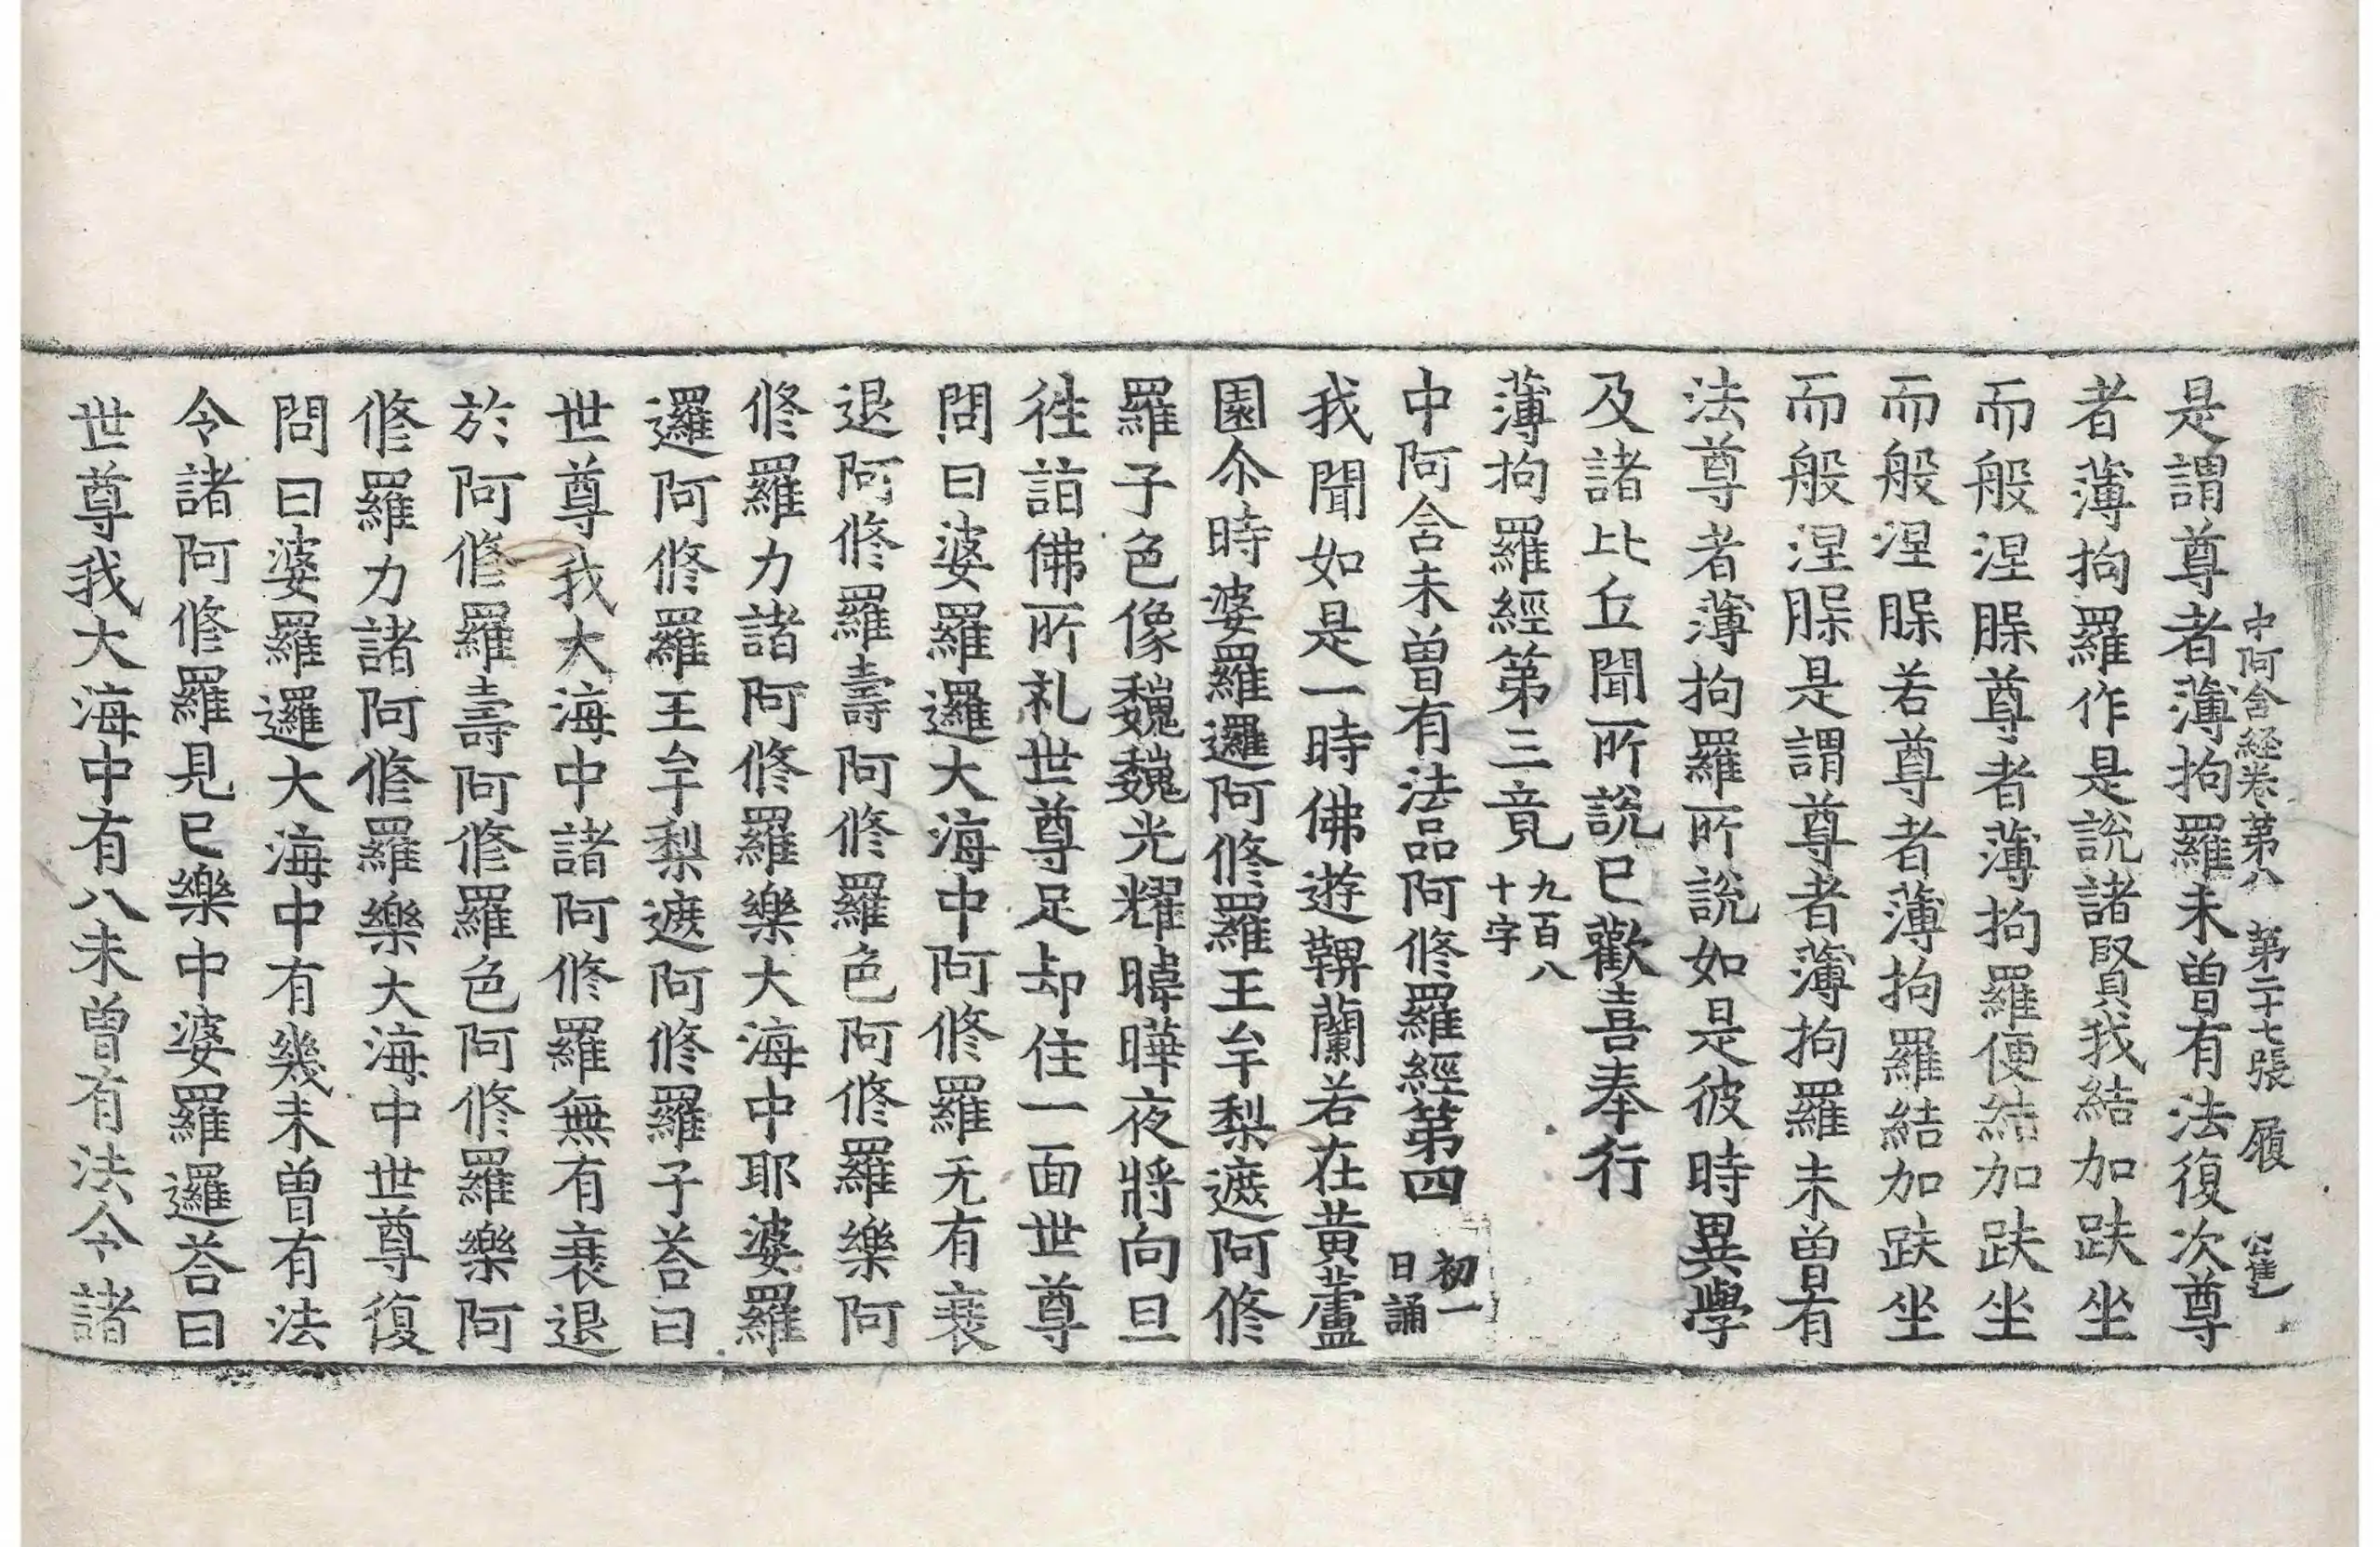 中阿含經卷第八　第二十七張　履
是謂尊者薄拘羅未曾有法復次尊
者薄拘羅作是說諸賢我結加趺坐
而般涅槃尊者薄拘羅便結加趺坐
而般涅槃若尊者薄拘羅結加趺坐
而般涅槃是謂尊者薄拘羅未曾有
法尊者薄拘羅所說如是彼時異學
及諸比丘聞所說已歡喜奉行
薄拘羅經第三竟九百八十字
中阿含未曾有法品阿修羅經第四初一日誦
我聞如是一時佛遊鞞蘭若在黃蘆
園尒時婆羅邏阿修羅王牟梨遮阿修
羅子色像巍巍光耀暐曄夜將向旦
往詣佛所礼世尊足却住一面世尊
問曰婆羅邏大海中阿修羅无有衰
退阿修羅壽阿修羅色阿修羅樂阿
修羅力諸阿修羅樂大海中耶婆羅
邏阿修羅王牟梨遮阿修羅子荅曰
世尊我大海中諸阿修羅無有衰退
於阿修羅壽阿修羅色阿修羅樂阿
修羅力諸阿修羅樂大海中世尊復
問曰婆羅邏大海中有幾未曾有法
令諸阿修羅見已樂中婆羅邏荅曰
世尊我大海中有八未曾有法令諸